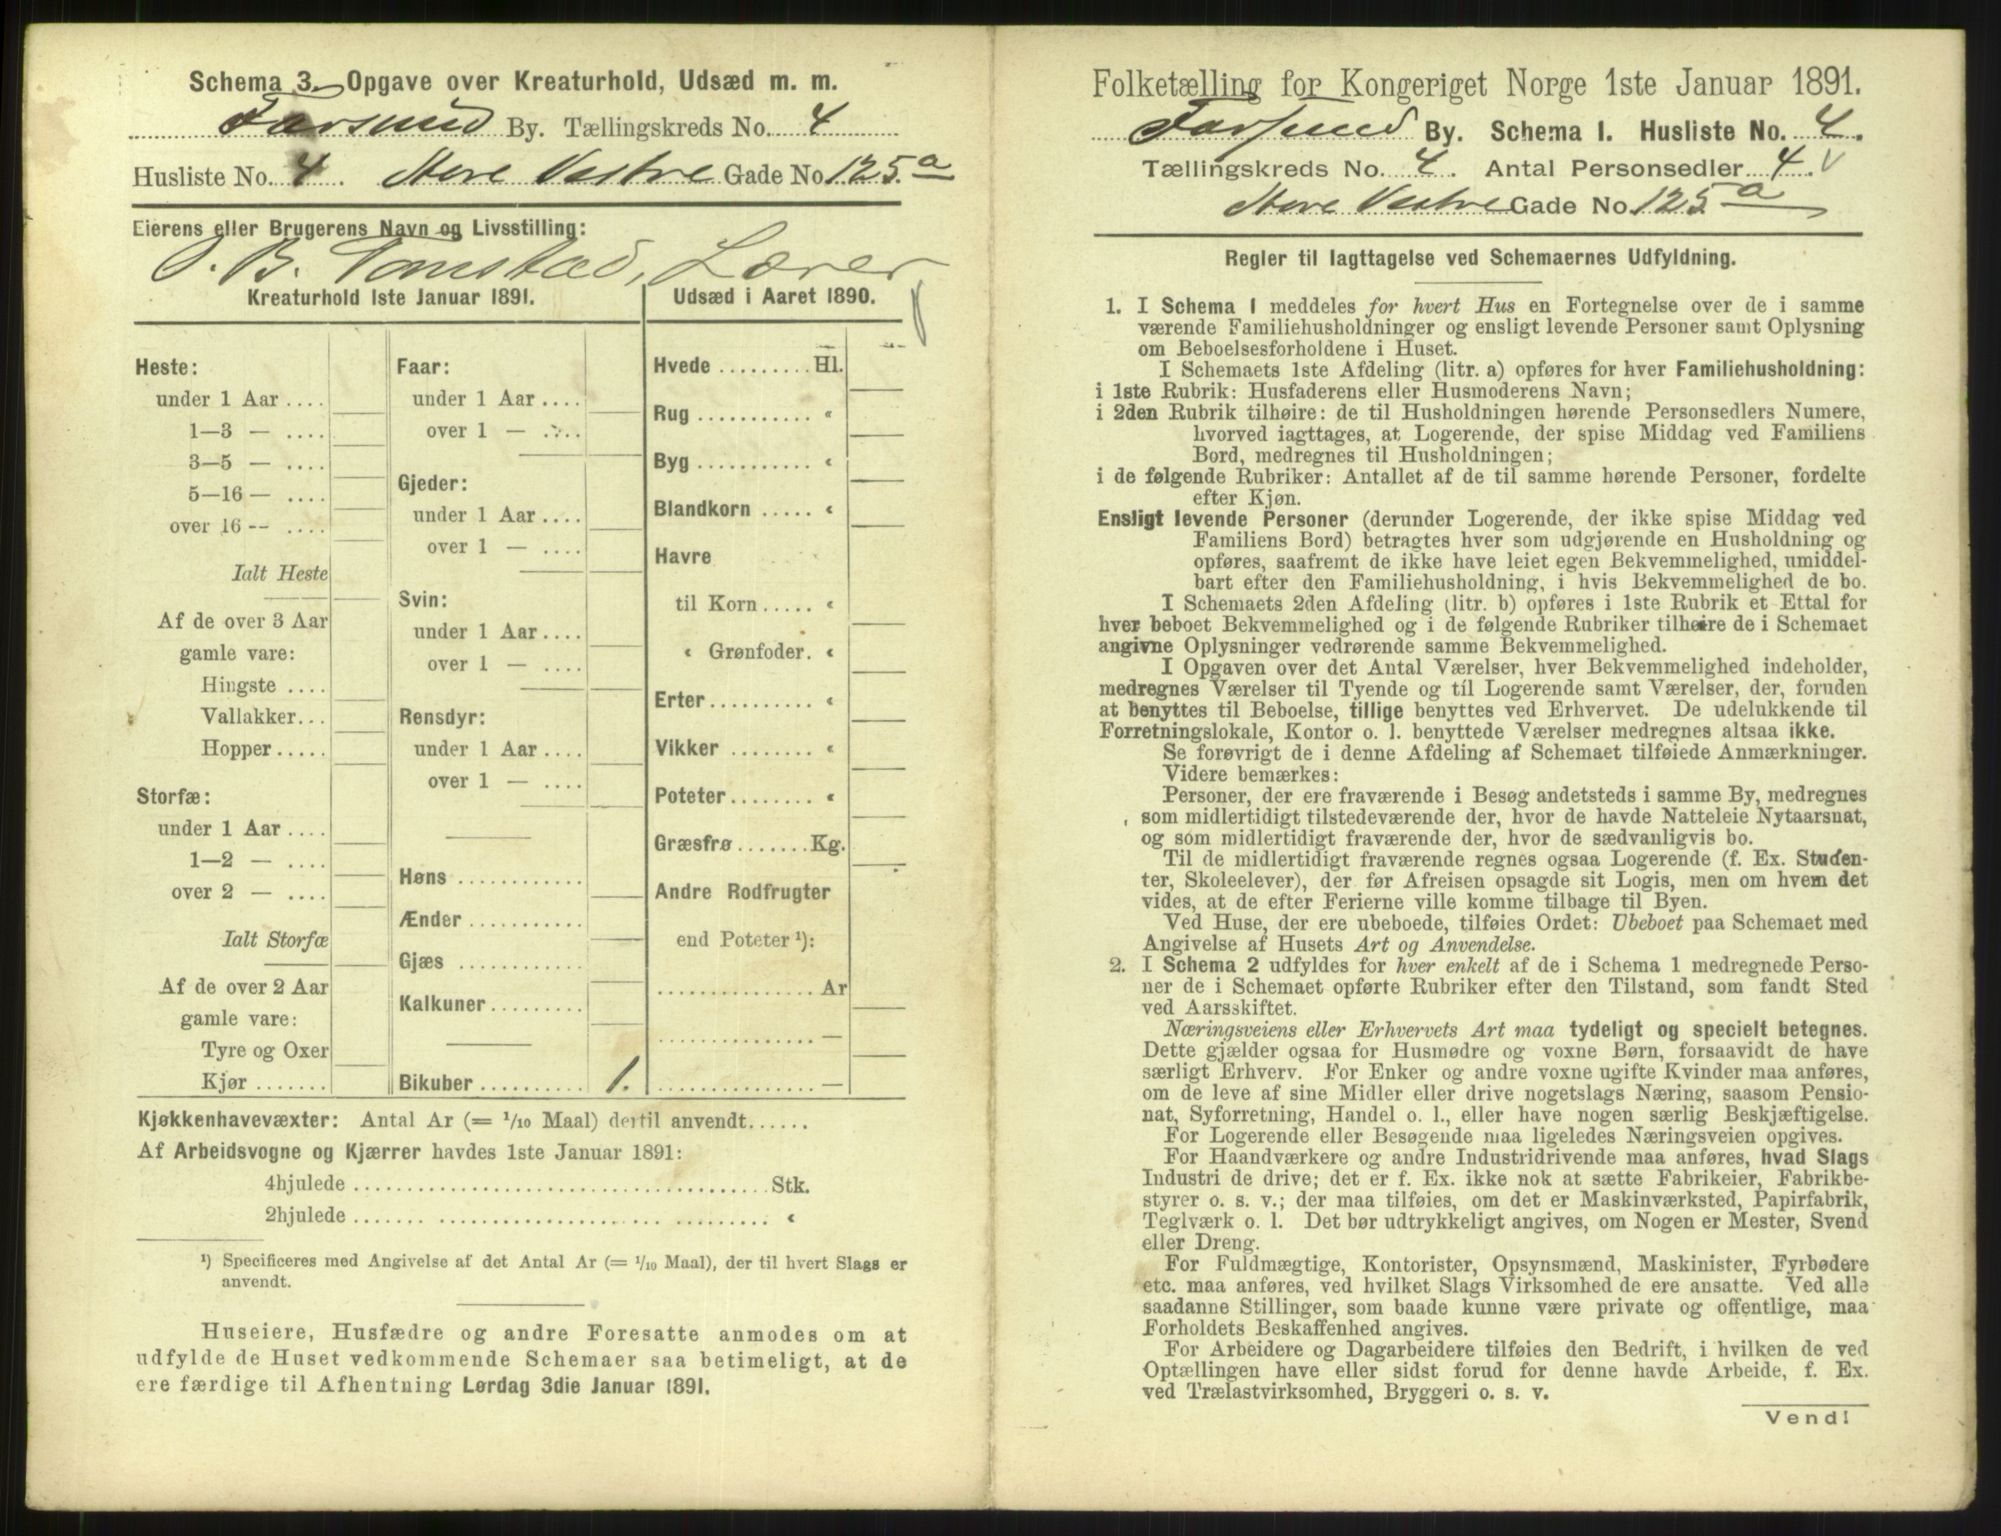 Schema 3. Opgave over Kreaturhold, Udsæd m. m.
Farsund By. Tællingskreds No. 4
Husliste No. 4. Store Vestre Gade No. 125 a
Eierens eller Brugerens Navn og Livsstilling:
O. B. Tomstad, Lærer
Kreaturhold 1ste Januar 1891.
Heste:
under 1 Aar ....
1—3 — ....
3—5 — ....
5—16 — ....
over 16 -- ....
Ialt Heste
Af de over 3 Aar
gamle vare:
Hingste ....
Vallakker...
Hopper.....
Storfæ:
under 1 Aar ....
1—2 — ....
over 2 — ....
Ialt Storfæ
Af de over 2 Aar
gamle vare:
Tyre og Oxer
Kjør .......
Faar:
under 1 Aar ....
over 1 — ....
Gjeder:
under 1 Aar ....
over 1 — ....
Svin:
under 1 Aar ....
over 1 — ....
Rensdyr:
under 1 Aar ....
over 1 — ....
Høns ............
Ænder ...........
Gjæs ............
Kalkuner.........
Bikuber .......... 1.
Udsæd i Aaret 1890.
Hvede ......... Hl.
Rug ........... «
Byg ........... «
Blandkorn ..... «
Havre
til Korn ..... «
« Grønfoder. «
Erter.......... «
Vikker ........ «
Poteter........ «
Græsfrø ....... Kg.
Andre Rodfrugter
end Poteter ¹):
............... Ar
............... —
............... —
Kjøkkenhavevæxter: Antal Ar (= 1/10 Maal) dertil anvendt......
Af Arbeidsvogne og Kjærrer havdes 1ste Januar 1891:
4hjulede ........................................ Stk.
2hjulede ........................................ «
¹) Specificeres med Angivelse af det Antal Ar (= 1/10 Maal), der til hvert Slags er
anvendt.
Huseiere, Husfædre og andre Foresatte anmodes om at
udfylde de Huset vedkommende Schemaer saa betimeligt, at de
ere færdige til Afhentning Lørdag 3die Januar 1891.
Folketælling for Kongeriget Norge 1ste Januar 1891.
Farsund By. Schema 1. Husliste No. 4.
Tællingskreds No. 4. Antal Personsedler 4.
Store Vestre Gade No. 125 a
Regler til Iagttagelse ved Schemaernes Udfyldning.
1. I Schema 1 meddeles for hvert Hus en Fortegnelse over de i samme
værende Familiehusholdninger og ensligt levende Personer samt Oplysning
om Beboelsesforholdene i Huset.
I Schemaets 1ste Afdeling (litr. a) opføres for hver Familiehusholdning:
i 1ste Rubrik: Husfaderens eller Husmoderens Navn;
i 2den Rubrik tilhøire: de til Husholdningen hørende Personsedlers Numere,
hvorved iagttages, at Logerende, der spise Middag ved Familiens
Bord, medregnes til Husholdningen;
i de følgende Rubriker: Antallet af de til samme hørende Personer, fordelte
efter Kjøn.
Ensligt levende Personer (derunder Logerende, der ikke spise Middag ved
Familiens Bord) betragtes hver som udgjørende en Husholdning og
opføres, saafremt de ikke have leiet egen Bekvemmelighed, umiddel-
bart efter den Familiehusholdning, i hvis Bekvemmelighed de bo.
I Schemaets 2den Afdeling (litr. b) opføres i 1ste Rubrik et Ettal for
hver beboet Bekvemmelighed og i de følgende Rubriker tilhøire de i Schemaet
angivne Oplysninger vedrørende samme Bekvemmelighed.
I Opgaven over det Antal Værelser, hver Bekvemmelighed indeholder,
medregnes Værelser til Tyende og til Logerende samt Værelser, der, foruden
at benyttes til Beboelse, tillige benyttes ved Erhvervet. De udelukkende til
Forretningslokale, Kontor o. l. benyttede Værelser medregnes altsaa ikke.
Se forøvrigt de i denne Afdeling af Schemaet tilføiede Anmærkninger.
Videre bemærkes:
Personer, der ere fraværende i Besøg andetsteds i samme By, medregnes
som midlertidigt tilstedeværende der, hvor de havde Natteleie Nytaarsnat,
og som midlertidigt fraværende der, hvor de sædvanligvis bo.
Til de midlertidigt fraværende regnes ogsaa Logerende (f. Ex. Studen-
ter, Skoleelever), der før Afreisen opsagde sit Logis, men om hvem det
vides, at de efter Ferierne ville komme tilbage til Byen.
Ved Huse, der ere ubeboede, tilføies Ordet: Ubeboet paa Schemaet med
Angivelse af Husets Art og Anvendelse.
2. I Schema 2 udfyldes for hver enkelt af de i Schema 1 medregnede Perso-
ner de i Schemaet opførte Rubriker efter den Tilstand, som fandt Sted
ved Aarsskiftet.
Næringsveiens eller Erhvervets Art maa tydeligt og specielt betegnes.
Dette gjælder ogsaa for Husmødre og voxne Børn, forsaavidt de have
særligt Erhverv. For Enker og andre voxne ugifte Kvinder maa anføres,
om de leve af sine Midler eller drive nogetslags Næring, saasom Pensio-
nat, Syforretning, Handel o. l., eller have nogen særlig Beskjæftigelse.
For Logerende eller Besøgende maa ligeledes Næringsveien opgives.
For Haandværkere og andre Industridrivende maa anføres, hvad Slags
Industri de drive; det er f. Ex. ikke nok at sætte Fabrikeier, Fabrikbe-
styrer o. s. v.; der maa tilføies, om det er Maskinværksted, Papirfabrik,
Teglværk o. l. Det bør udtrykkeligt angives, om Nogen er Mester, Svend
eller Dreng.
For Fuldmægtige, Kontorister, Opsynsmænd, Maskinister, Fyrbødere
etc. maa anføres, ved hvilket Slags Virksomhed de ere ansatte. Ved alle
saadanne Stillinger, som baade kunne være private og offentlige, maa
Forholdets Beskaffenhed angives.
For Arbeidere og Dagarbeidere tilføies den Bedrift, i hvilken de ved
Optællingen have eller sidst forud for denne havde Arbeide, f. Ex.
ved Trælastvirksomhed, Bryggeri o. s. v.
Vend!